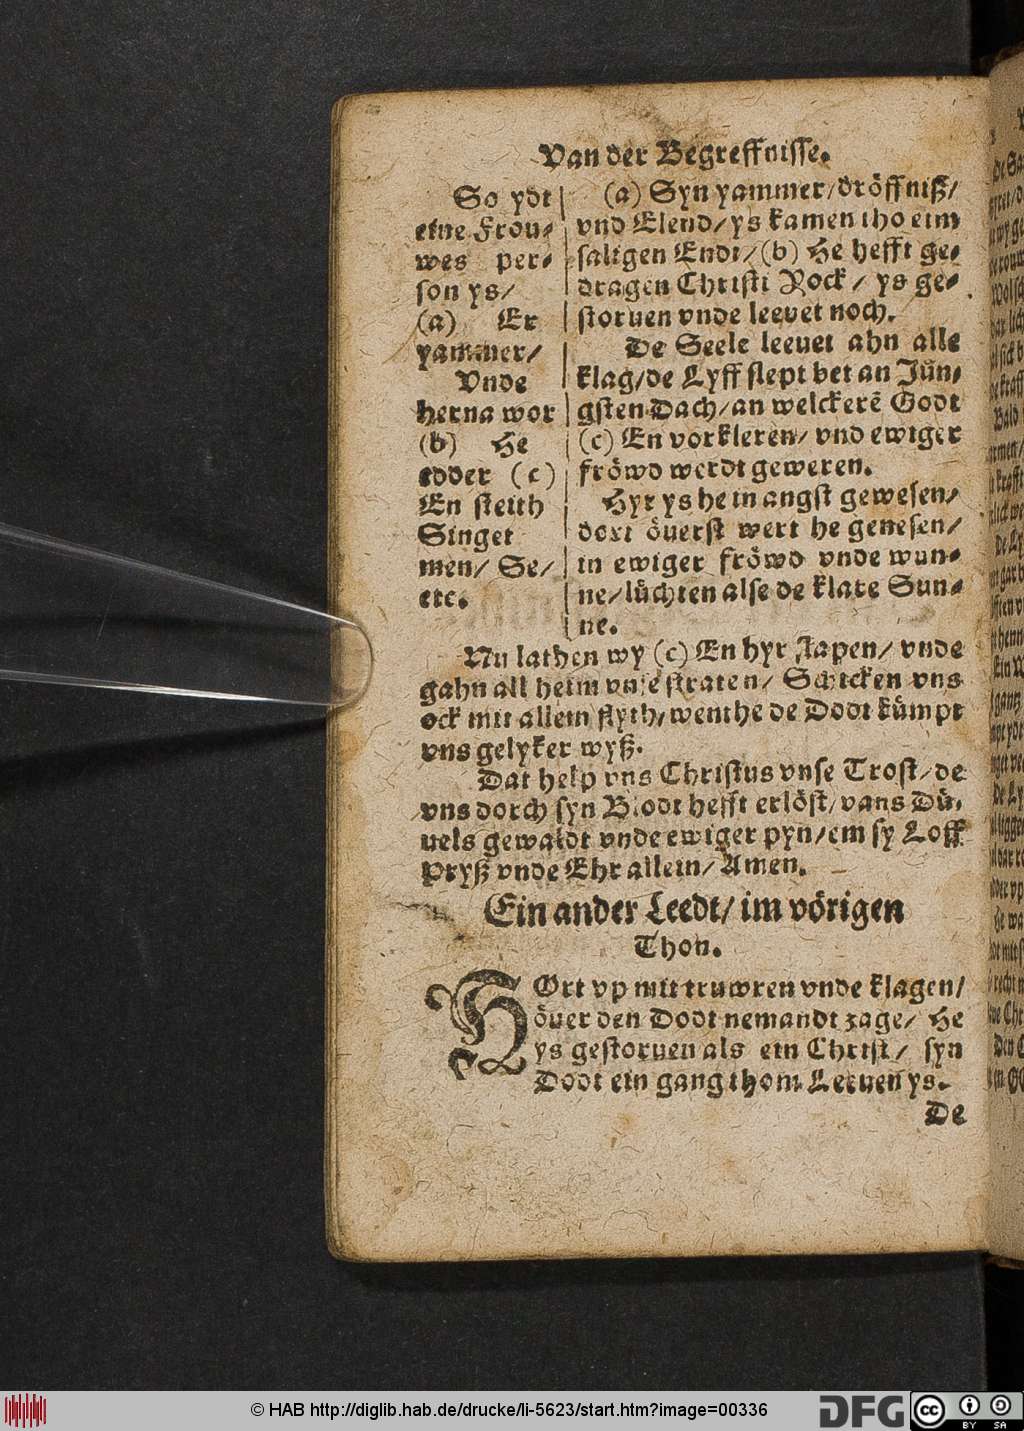 Van der Begreffnisse.
So ydt
eine Frou-
wes per-
son ys/
(a) Er
yammer/
Vnde
herna wor
(b) He
edder (c)
En steith
Singet
men/ Se/
etc.
(a) Syn yammer/dröffniß/
vnd Elend/ys kamen tho eim
saligen Endt/(b) He hefft ge-
dragen Christi Rock/ ys ge-
storuen vnde leeuet noch.
De Seele leeuet ahn alle
klag/de Lyff slept bet an Jün-
gsten Dach/an welckerē Godt
(c) En vorkleren/ vnd ewiger
fröwd werdt geweren.
Hyr ys he in angst gewesen/
dort öuerst wert he genesen/
in ewiger fröwd vnde wun-
ne/lüchten alse de klare Sun-
ne.
Nu lathen wy (c) En hyr slapen/ vnde
gahn all heim vnse straten/ Schicken vns
ock mit allem flyth/wenthe de Dodt kümpt
vns gelyker wyß.
Dat help vns Christus vnse Trost/de
vns dorch syn Blodt hefft erlöst/vans Dü-
uels gewaldt vnde ewiger pyn/em sy Loff
Pryß vnde Ehr allein/Amen.
Ein ander Leedt/ im vörigen
Thon.
HOrt vp mit truwren vnde klagen/
öuer den Dodt nemandt zage/ He
ys gestoruen als ein Christ/ syn
Dodt ein gang thom Leeuen ys.
De
© HAB http://diglib.hab.de/drucke/li-5623/start.htm?image=00336
DFG
cc
BY SA